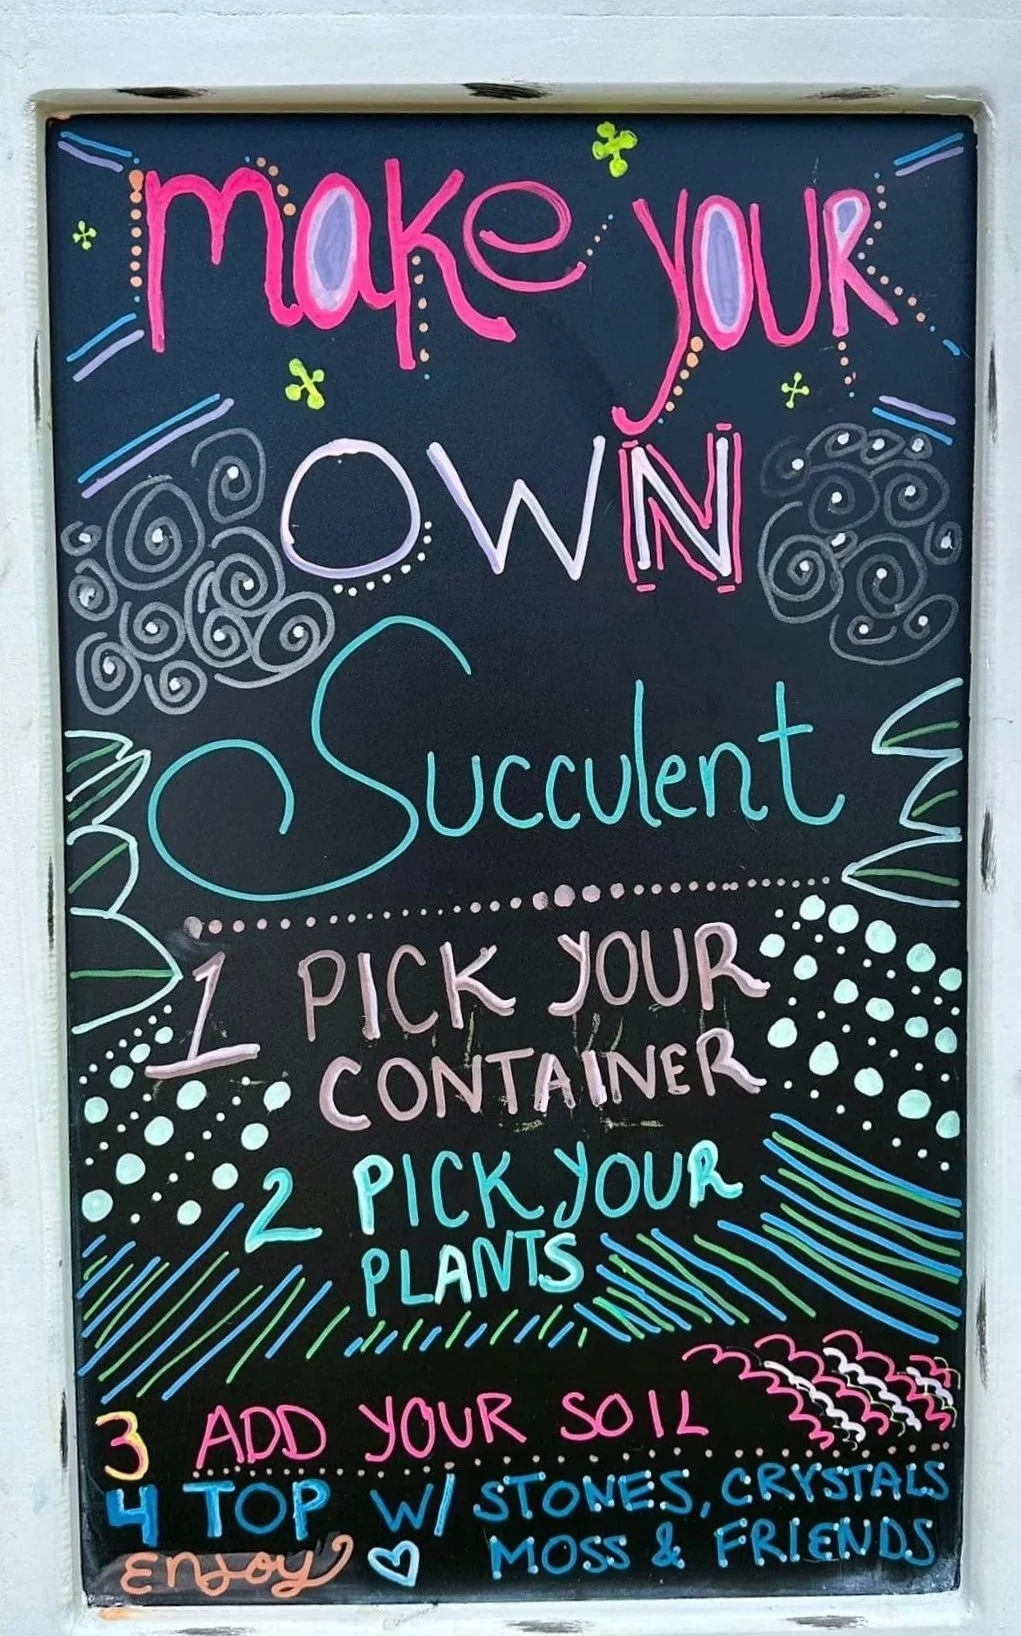 make your
OWN
Succulent
1 PICK YOUR
CONTAINER
2 PICK YOUR
PLANTS
3 ADD YOUR SOIL
4 TOP W/ STONES, CRYSTALS
MOSS & FRIENDS
Enjoy